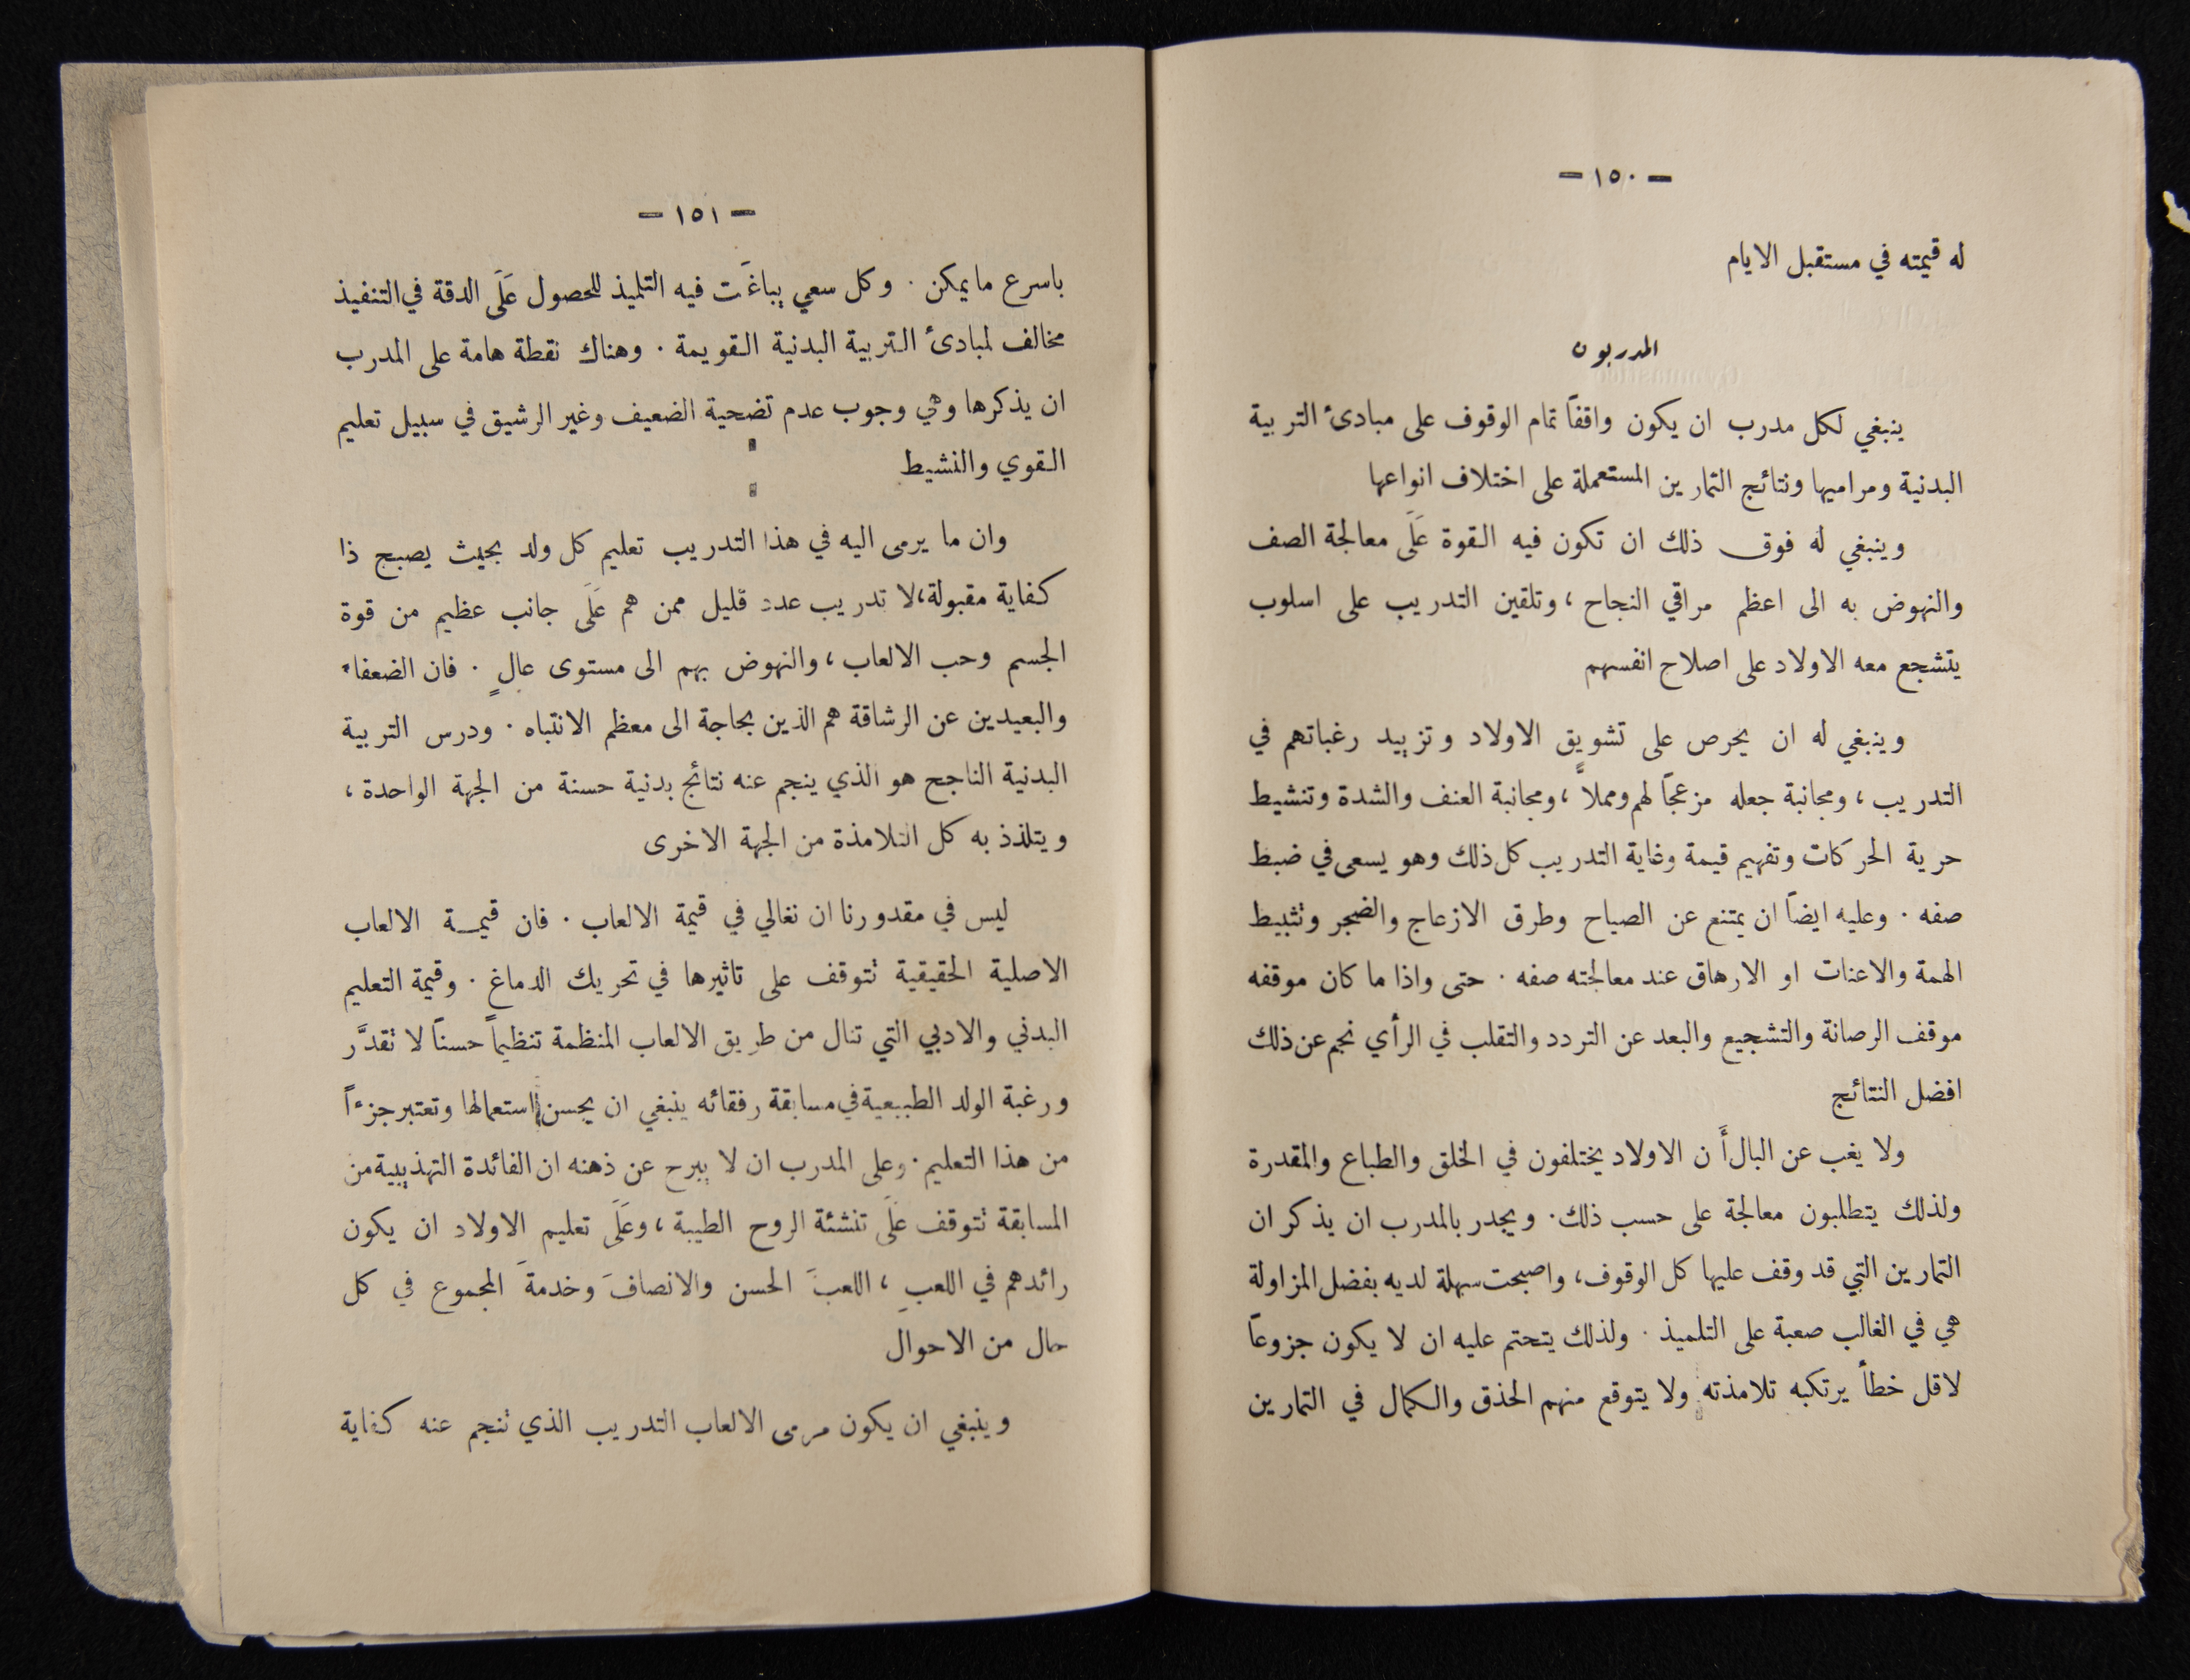 — ١٥٠ —
له قيمته في مستقبل الايام
المدربون
ينبغي لكل مدرب ان يكون واقفاً تمام الوقوف على مبادئ التربية
البدنية ومراميها ونتائج التمارين المستعملة على اختلاف انواعها
وينبغي له فوق ذلك ان تكون فيه القوة عَلَى معالجة الصف
والنهوض به الى اعظم مراقي النجاح ، وتلقين التدريب على اسلوب
يتشجع معه الاولاد على اصلاح انفسهم
وينبغي له ان يحرص على تشويق الاولاد وتزييد رغباتهم في
التدريب ، ومجانبة جعله مزعجاً لهم ومملاً ، ومجانبة العنف والشدة وتنشيط
حرية الحركات وتفهيم قيمة وغاية التدريب كل ذلك وهو يسعى في ضبط
صفه . وعليه ايضاً ان يمتنع عن الصياح وطرق الازعاج والضجر وتثبيط
الهمة والاعنات او الارهاق عند معالجته صفه . حتى واذا ما كان موقفه
موقف الرصانة والتشجيع والبعد عن التردد والتقلب في الرأي نجم عن ذلك
افضل النتائج
ولا يغب عن البال أَن الاولاد يختلفون في الخلق والطباع والمقدرة
ولذلك يتطلبون معالجة على حسب ذلك . ويجدر بالمدرب ان يذكر ان
التمارين التي قد وقف عليها كل الوقوف ، واصبحت سهلة لديه بفضل المزاولة
هي في الغالب صعبة على التلميذ . ولذلك يتحتم عليه ان لا يكون جزوعاً
لاقل خطأ يرتكبه تلامذته ولا يتوقع منهم الحذق والكمال في التمارين
— ١٥١ —
باسرع ما يمكن . وكل سعي يباغَت فيه التلميذ للحصول عَلَى الدقة في التنفيذ
مخالف لمبادئ التربية البدنية القويمة . وهناك نقطة هامة على المدرب
ان يذكرها وهي وجوب عدم تضحية الضعيف وغير الرشيق في سبيل تعليم
القوي والنشيط
وان ما يرمى اليه في هذا التدريب تعليم كل ولد بحيث يصبح ذا
كفاية مقبولة ، لا تدريب عدد قليل ممن هم عَلَى جانب عظيم من قوة
الجسم وحب الالعاب ، والنهوض بهم الى مستوى عالٍ . فان الضعفاء
والبعيدين عن الرشاقة هم الذين بحاجة الى معظم الانتباه . ودرس التربية
البدنية الناجح هو الذي ينجم عنه نتائج بدنية حسنة من الجهة الواحدة ،
ويتلذذ به كل التلامذة من الجهة الاخرى
ليس في مقدورنا ان نغالي في قيمة الالعاب . فان قيمة الالعاب
الاصلية الحقيقية تتوقف على تاثيرها في تحريك الدماغ . وقيمة التعليم
البدني والادبي التي تنال من طريق الالعاب المنظمة تنظيماً حسناً لا تقدَّر
ورغبة الولد الطبيعية في مسابقة رفقائه ينبغي ان يحسن استعمالها وتعتبر جزءاً
من هذا التعليم . وعلى المدرب ان لا يبرح عن ذهنه ان الفائدة التهذيبية من
المسابقة تتوقف عَلَى تنشئة الروح الطيبة ، وعَلَى تعليم الاولاد ان يكون
رائدهم في اللعبِ ، اللعبَ الحسن والانصافَ وخدمةَ المجموع في كل
حال من الاحوال
وينبغي ان يكون مرمى الالعاب التدريب الذي تنجم عنه كفاية